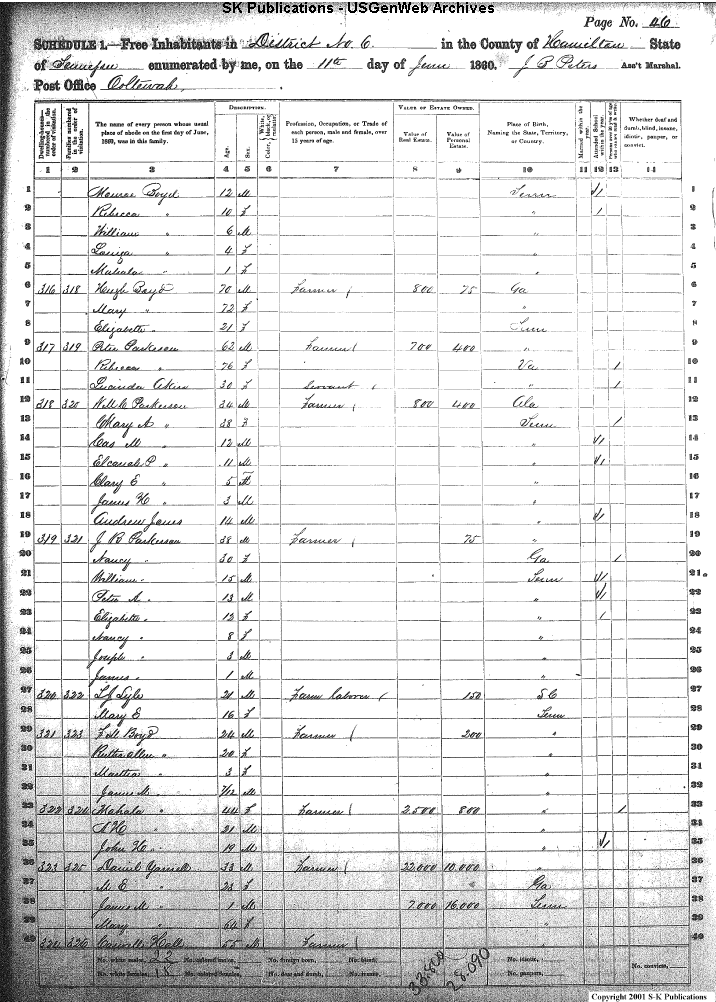 SK Publications - USGenWeb Archives
Page No. 46
SCHEDULE 1.—Free Inhabitants in District No. 6 in the County of Hamilton State
of Tennessee enumerated by me, on the 11th day of June 1860. J B Peters Ass't Marshal.
Post Office Ooltewah
Dwelling-houses—numbered in the order of visitation.
Families numbered in the order of visitation.
The name of every person whose usual place of abode on the first day of June, 1860, was in this family.
DESCRIPTION.
Age.
Sex.
Color, White, black, or mulatto.
Profession, Occupation, or Trade of each person, male and female, over 15 years of age.
VALUE OF ESTATE OWNED.
Value of Real Estate.
Value of Personal Estate.
Place of Birth, Naming the State, Territory, or Country.
Married within the year.
Attended School within the year.
Whether deaf and dumb, blind, insane, idiotic, pauper, or convict.
1 2 3 4 5 6 7 8 9 10 11 12 13 14
1 Monroe Boyd 12 M Tenn 1 1
2 Rebecca " 10 F " 1 2
3 William " 6 M " 3
4 Louiza " 4 F " 4
5 Mahala " 1 F " 5
6 316 318 Hugh Boyd 70 M Farmer 800 75 Ga 6
7 Mary " 72 F " 7
8 Elizabeth " 21 F Tenn 8
9 317 319 Peter Parkerson 62 M Farmer 700 400 " 9
10 Rebecca " 76 F Va 1 10
11 Lucinda Akin 30 F Servant " 1 11
12 318 320 Will C Parkerson 34 M Farmer 800 400 Ala 12
13 Mary A " 38 F Tenn 1 13
14 Cas M " 12 M " 1 14
15 Elcanah P " 11 M " 1 15
16 Clary E " 5 " 16
17 James H " 3 M " 17
18 Andrew Jones 14 M " 1 18
19 319 321 J B Parkerson 38 M Farmer 75 " 19
20 Nancy " 30 F Ga 1 20
21 William " 15 M Tenn 1 21
22 Peter A " 13 M " 1 22
23 Elizabeth " 12 F " 1 23
24 Nancy " 8 F " 24
25 Joseph " 3 M " 25
26 James " 1 M " 26
27 320 322 Lyle 21 M Farm laborer 150 S C 27
28 Mary E 16 F Tenn 28
29 321 323 F M Boyd 24 M Farmer 200 " 29
30 Ruthe Allen " 20 F " 30
31 Martha " 3 F " 31
32 James M " 7/12 M " 32
33 322 324 Mahala " 44 F Farmer 2.500 800 " 1 33
34 H " 21 M " 34
35 John H " 19 M " 1 35
36 323 325 Daniel Yarnell 33 M Farmer 22.000 10.000 " 36
37 M E " 23 F " Ga 37
38 James M " 1 M 7.000 16.000 Tenn 38
39 Mary " 64 F " 39
40 324 326 Hall 55 M Farmer " 40
No. white males, 22 No. colored males, No. foreign born, No. blind, No. idiotic, No. convicts,
No. white females, 18 No. colored females, No. deaf and dumb, No. insane, No. paupers,
33.800 28.090
Copyright 2001 S-K Publications